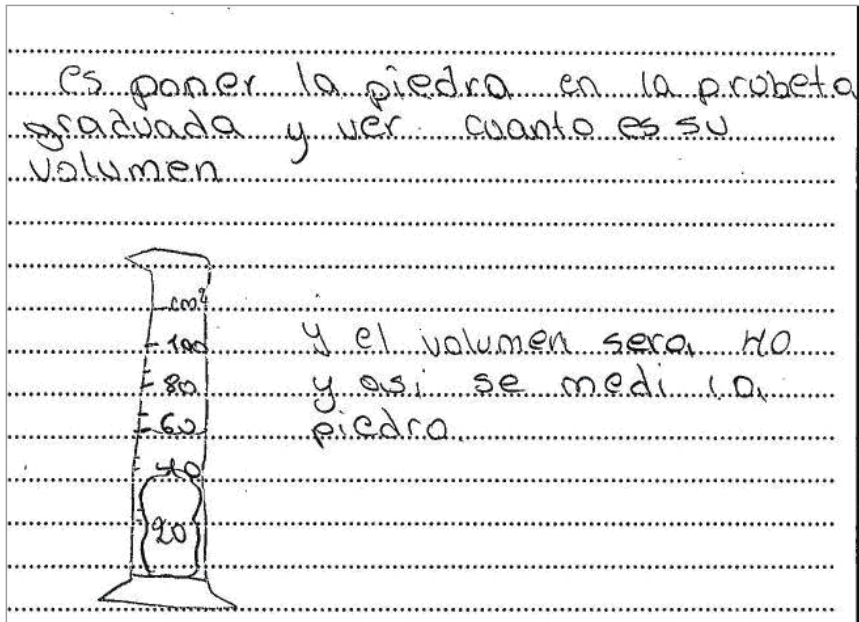 es poner la piedra en la probeta
graduada y ver cuanto es su
volumen
cm³
100
80
60
40
20
y el volumen sera 40
y asi se medi la
piedra.